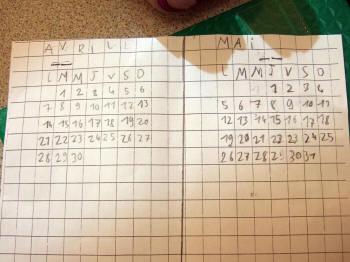 A V R i L L
L M M J V S D
1 2 3 4 5 6
7 8 9 10 11 12 13
14 15 16 17 18 19 20
21 22 23 24 25 26 27
28 29 30
M A i
L M M J V S D
1 2 3 4
5 6 7 8 9 10 11
12 13 14 15 16 17 18
19 20 21 22 23 24 25
26 27 28 29 30 31